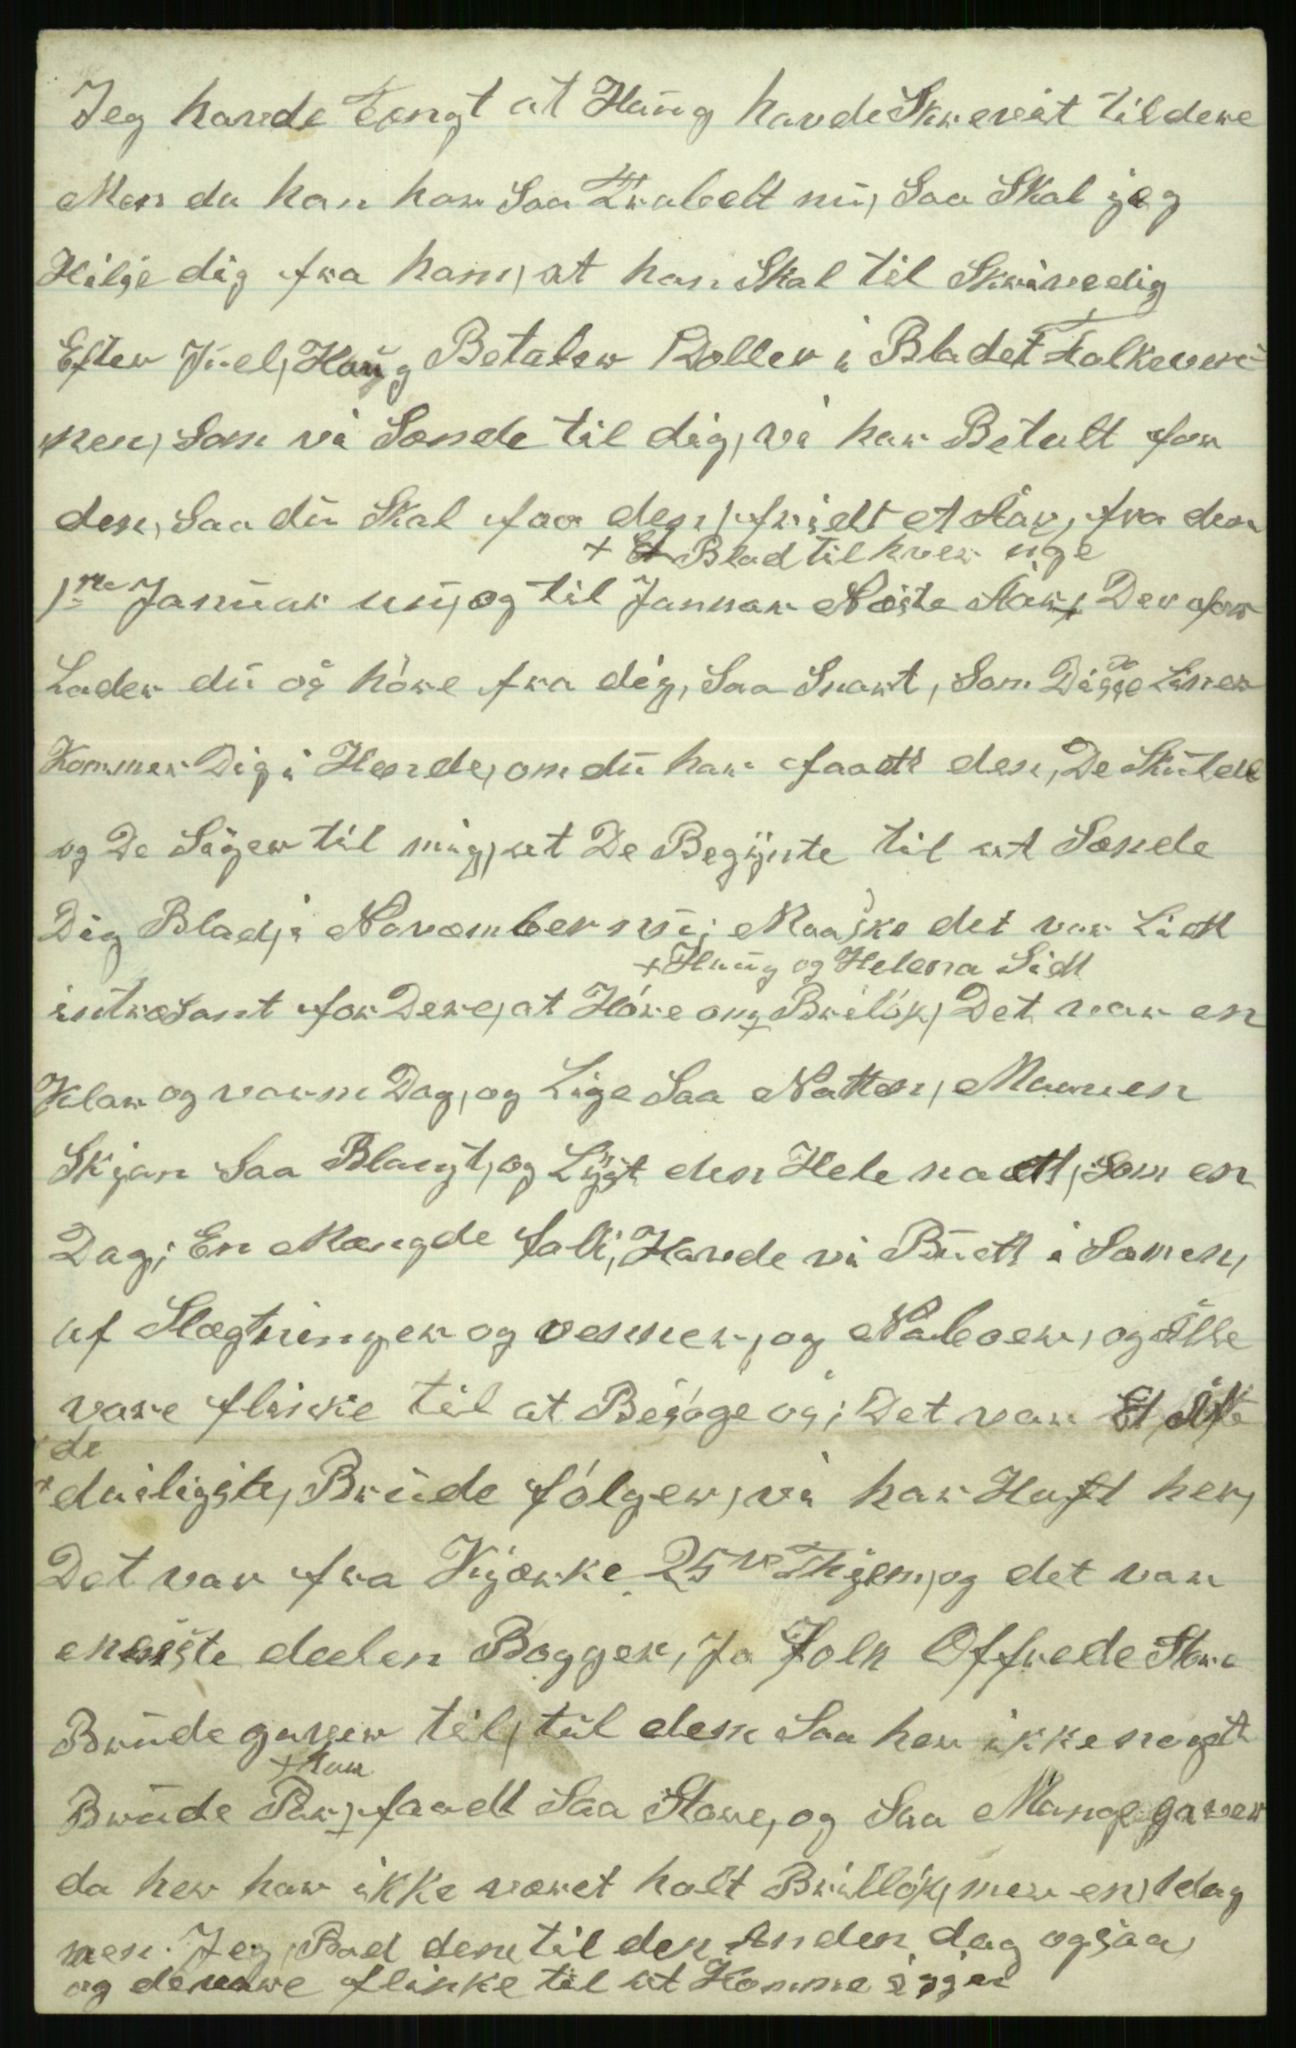 Jeg havde tængt at Haug havde Skrevet til dere
Men da han har Saa Trabelt nu, Saa Skal jeg
Hilse dig fra ham, at han Skal til Skrive dig
Efter Juel, Haug Betaler 1 Doller i Bladet Folkeven=
nen, Som vi Sænde til dig, vi har Betalt for
den, Saa du Skal faa den, fridt et Aar, fra den
+ Et Blad til hver uge
1re Januar nu, og til Januar Næste Aar, Der for
Lader du os høre fra dig, Saa Snart, Som Disse Liner
Kommer Dig i Hænde, om du har faadt den, De Skulde
og De Siger til mig, at De Begynte til at Sænde
Dig Blad, i November nu; Maaske det var Lidt
+ Haug og Helena Sidt
intresant for Dere, at Høre om + Brúløp, Det var en
Klar og varm Dag, og Lige Saa Natten, Maanen
Skjæn Saa Blangt, og Lyst den Hele nadtt, Som en
Dag; En Mængde folk, Havde vi Budt i Samen,
af Slægtninger og venner, og Naboer, og Alle
vare flinke til at Besøge os; Det var Et Af
de
+ deiligste, Brude følger, vi har Haft her,
Det var fra Kjærke 25ve Thiem, og det var
eneste deelen Bogger, Ja Folk Offrede Store
Brude gaver til, til dem Saa her ikke noget
+ har
Brude Par, + faadt Saa Store, og Saa Mange gaver
da her har ikke været holt Brølløp, mer en, 1 dag
men Jeg, Bad dem til den Anden dag ogsaa,
og de vare flinke til at Komme iggen